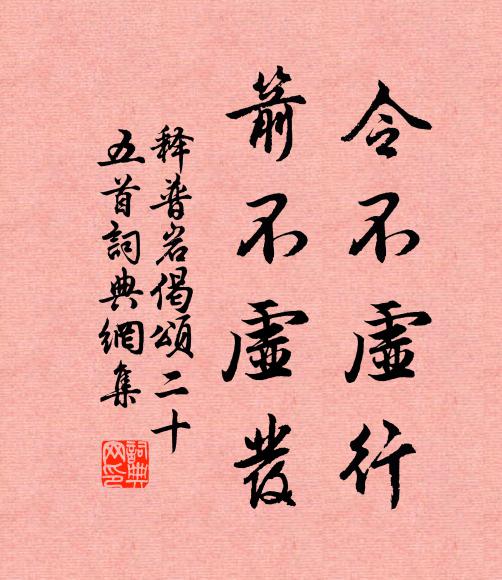 令不虛行
箭不虛發
释普岩偈頌二十
五首詞典網集
詞典网印